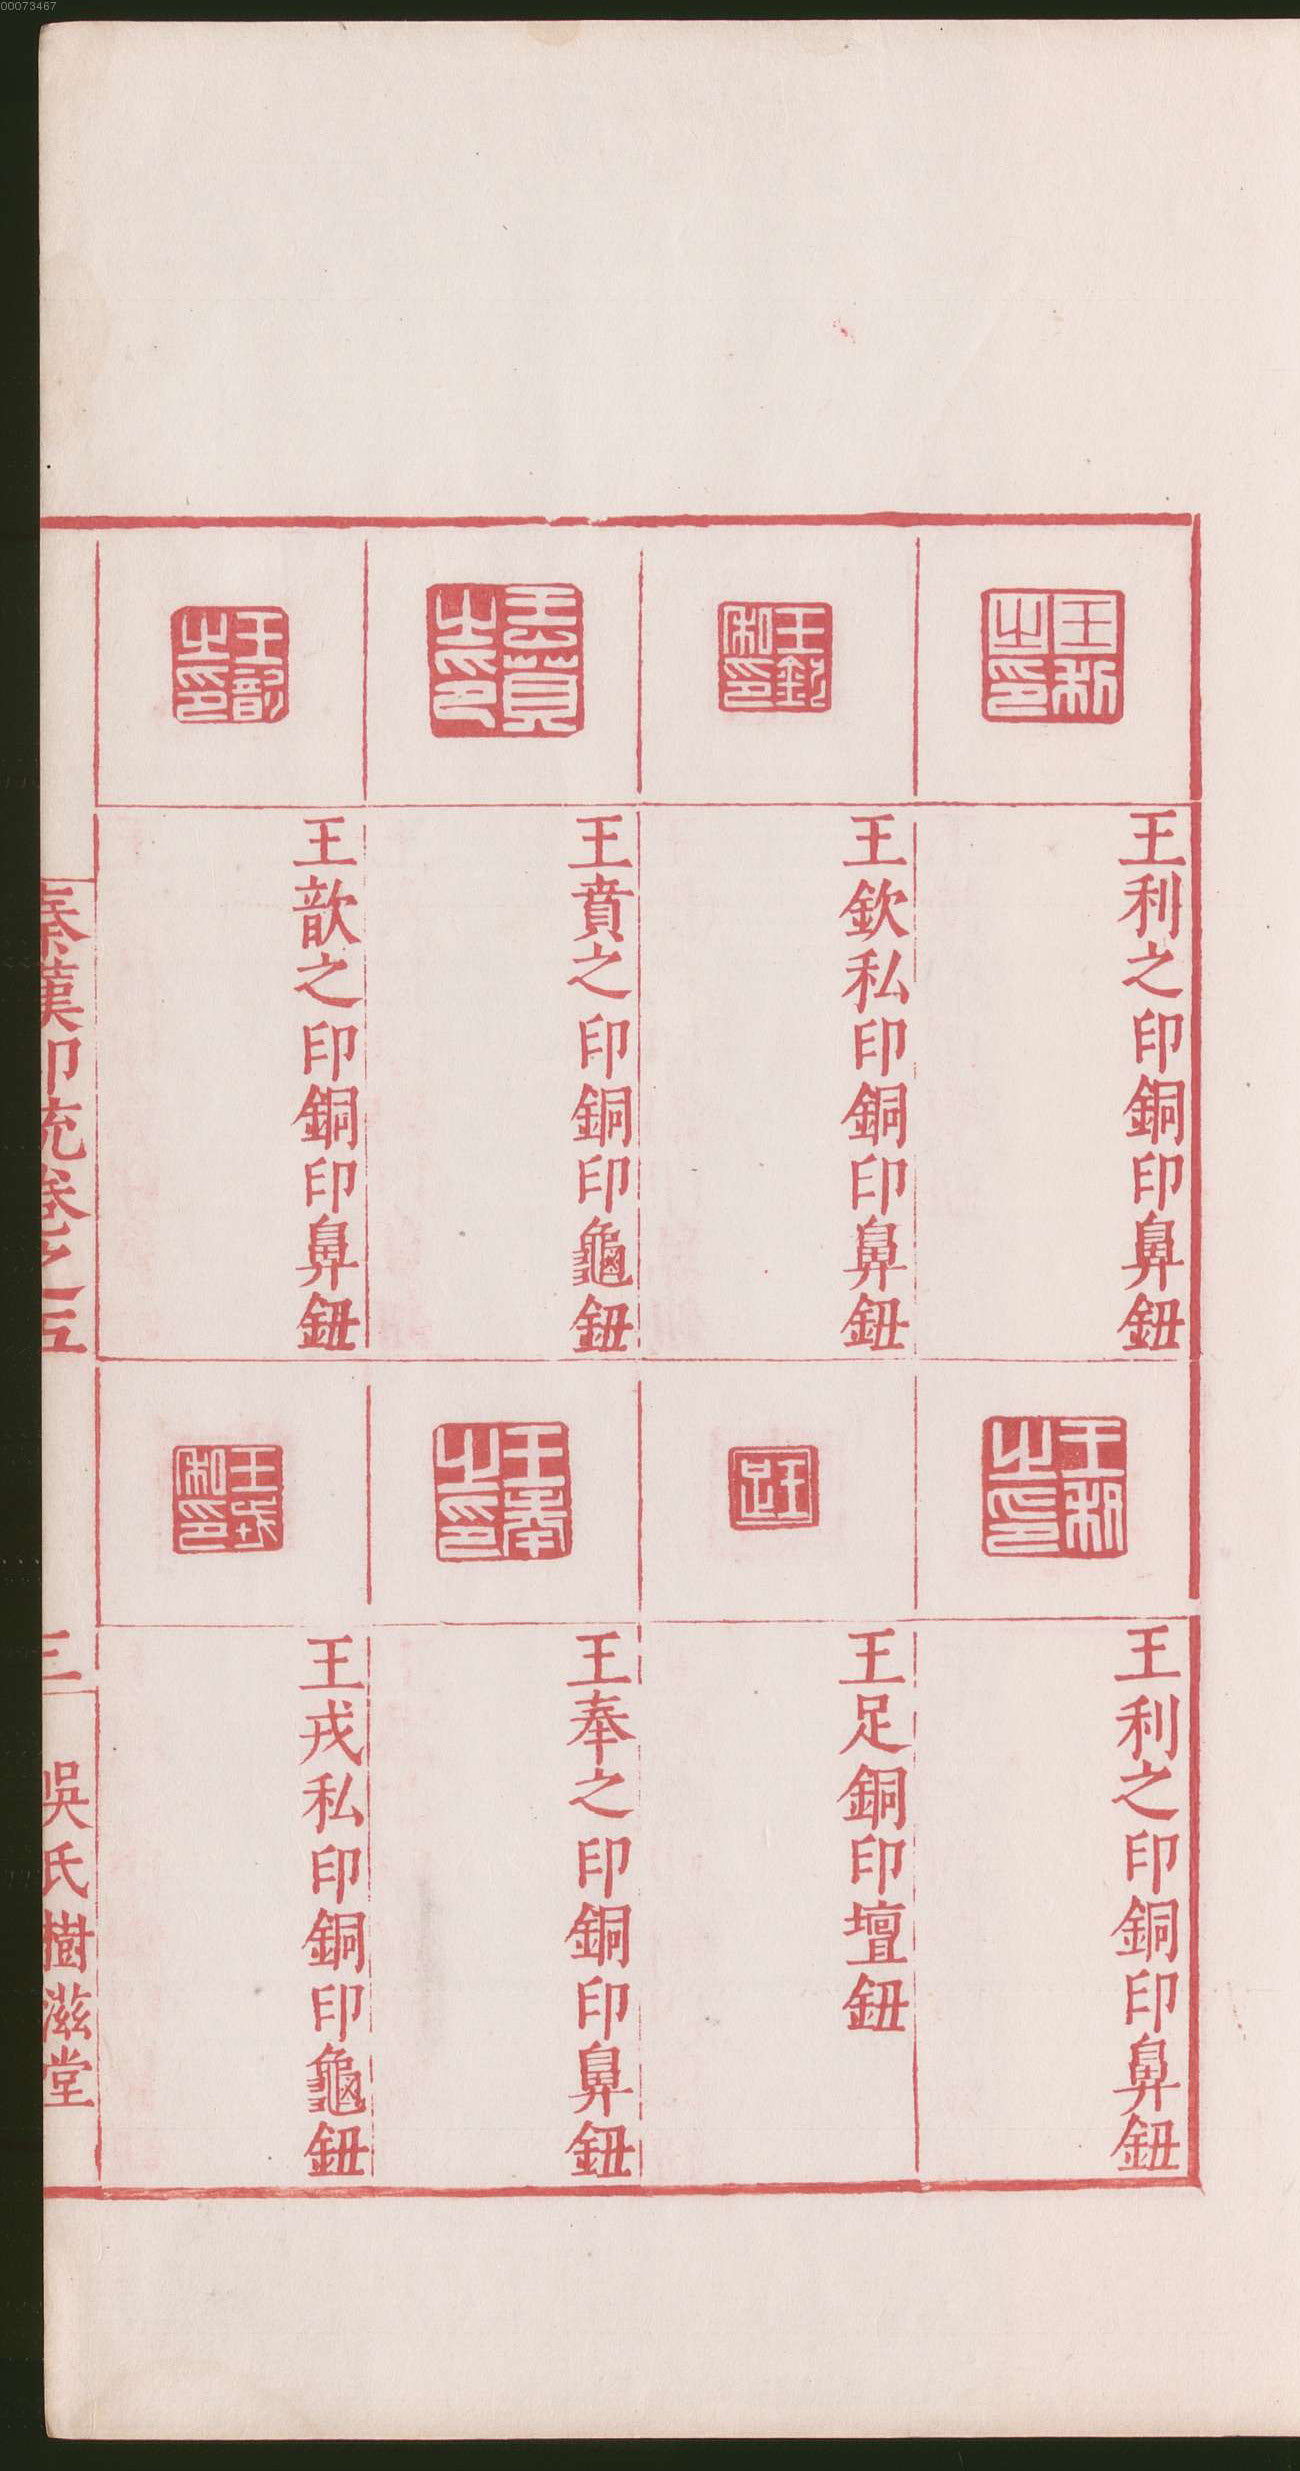 00073467
王利之印
王利之印銅印鼻鈕
王欽私印
王欽私印銅印鼻鈕
王賁之印
王賁之印銅印龜鈕
王歆之印
王歆之印銅印鼻鈕
王利之印
王利之印銅印鼻鈕
王足
王足銅印壇鈕
王奉之印
王奉之印銅印鼻鈕
王戎私印
王戎私印銅印龜鈕
秦漢印統卷之五
三
吳氏樹滋堂